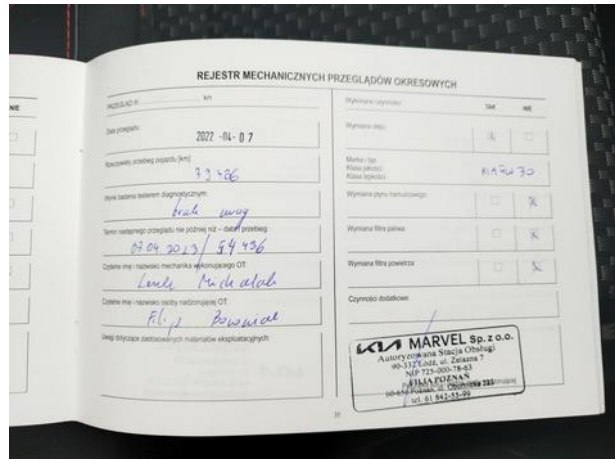 REJESTR MECHANICZNYCH PRZEGLĄDÓW OKRESOWYCH
NIE
PRZEGLĄD W km
Data przeglądu:
2022 -04- 07
Rzeczywisty przebieg pojazdu [km]:
Wynik badania testerem diagnostycznym:
brak uwag
Termin następnego przeglądu nie później niż – data / przebieg:
07 04 2023 / 54 436
Czytelne imię i nazwisko mechanika wykonującego OT:
Michalak
Czytelne imię i nazwisko osoby nadzorującej OT:
Filip
Uwagi dotyczące zastosowanych materiałów eksploatacyjnych:
Wykonane czynności:
TAK
NIE
Wymiana oleju:
Marka / typ:
Klasa jakości:
Klasa lepkości:
Wymiana płynu hamulcowego:
Wymiana filtra paliwa:
Wymiana filtra powietrza:
Czynności dodatkowe:
KIA MARVEL Sp. z o.o.
Autoryzowana Stacja Obsługi
90-332 Łódź, ul. Żelazna 7
NIP 725-000-78-63
FILIA POZNAŃ
Poznań, ul. Obornicka
tel. 61 842-55-99